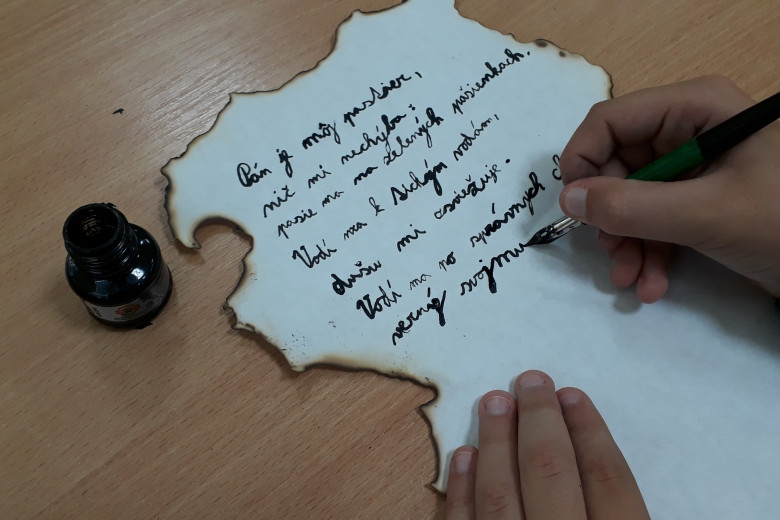 Pán je môj pastier,
nič mi nechýba:
pasie ma na zelených pásienkach.
Vodí ma k tichým vodám,
dušu mi osviežuje.
Vodí ma po správnych ch
verný svojmu